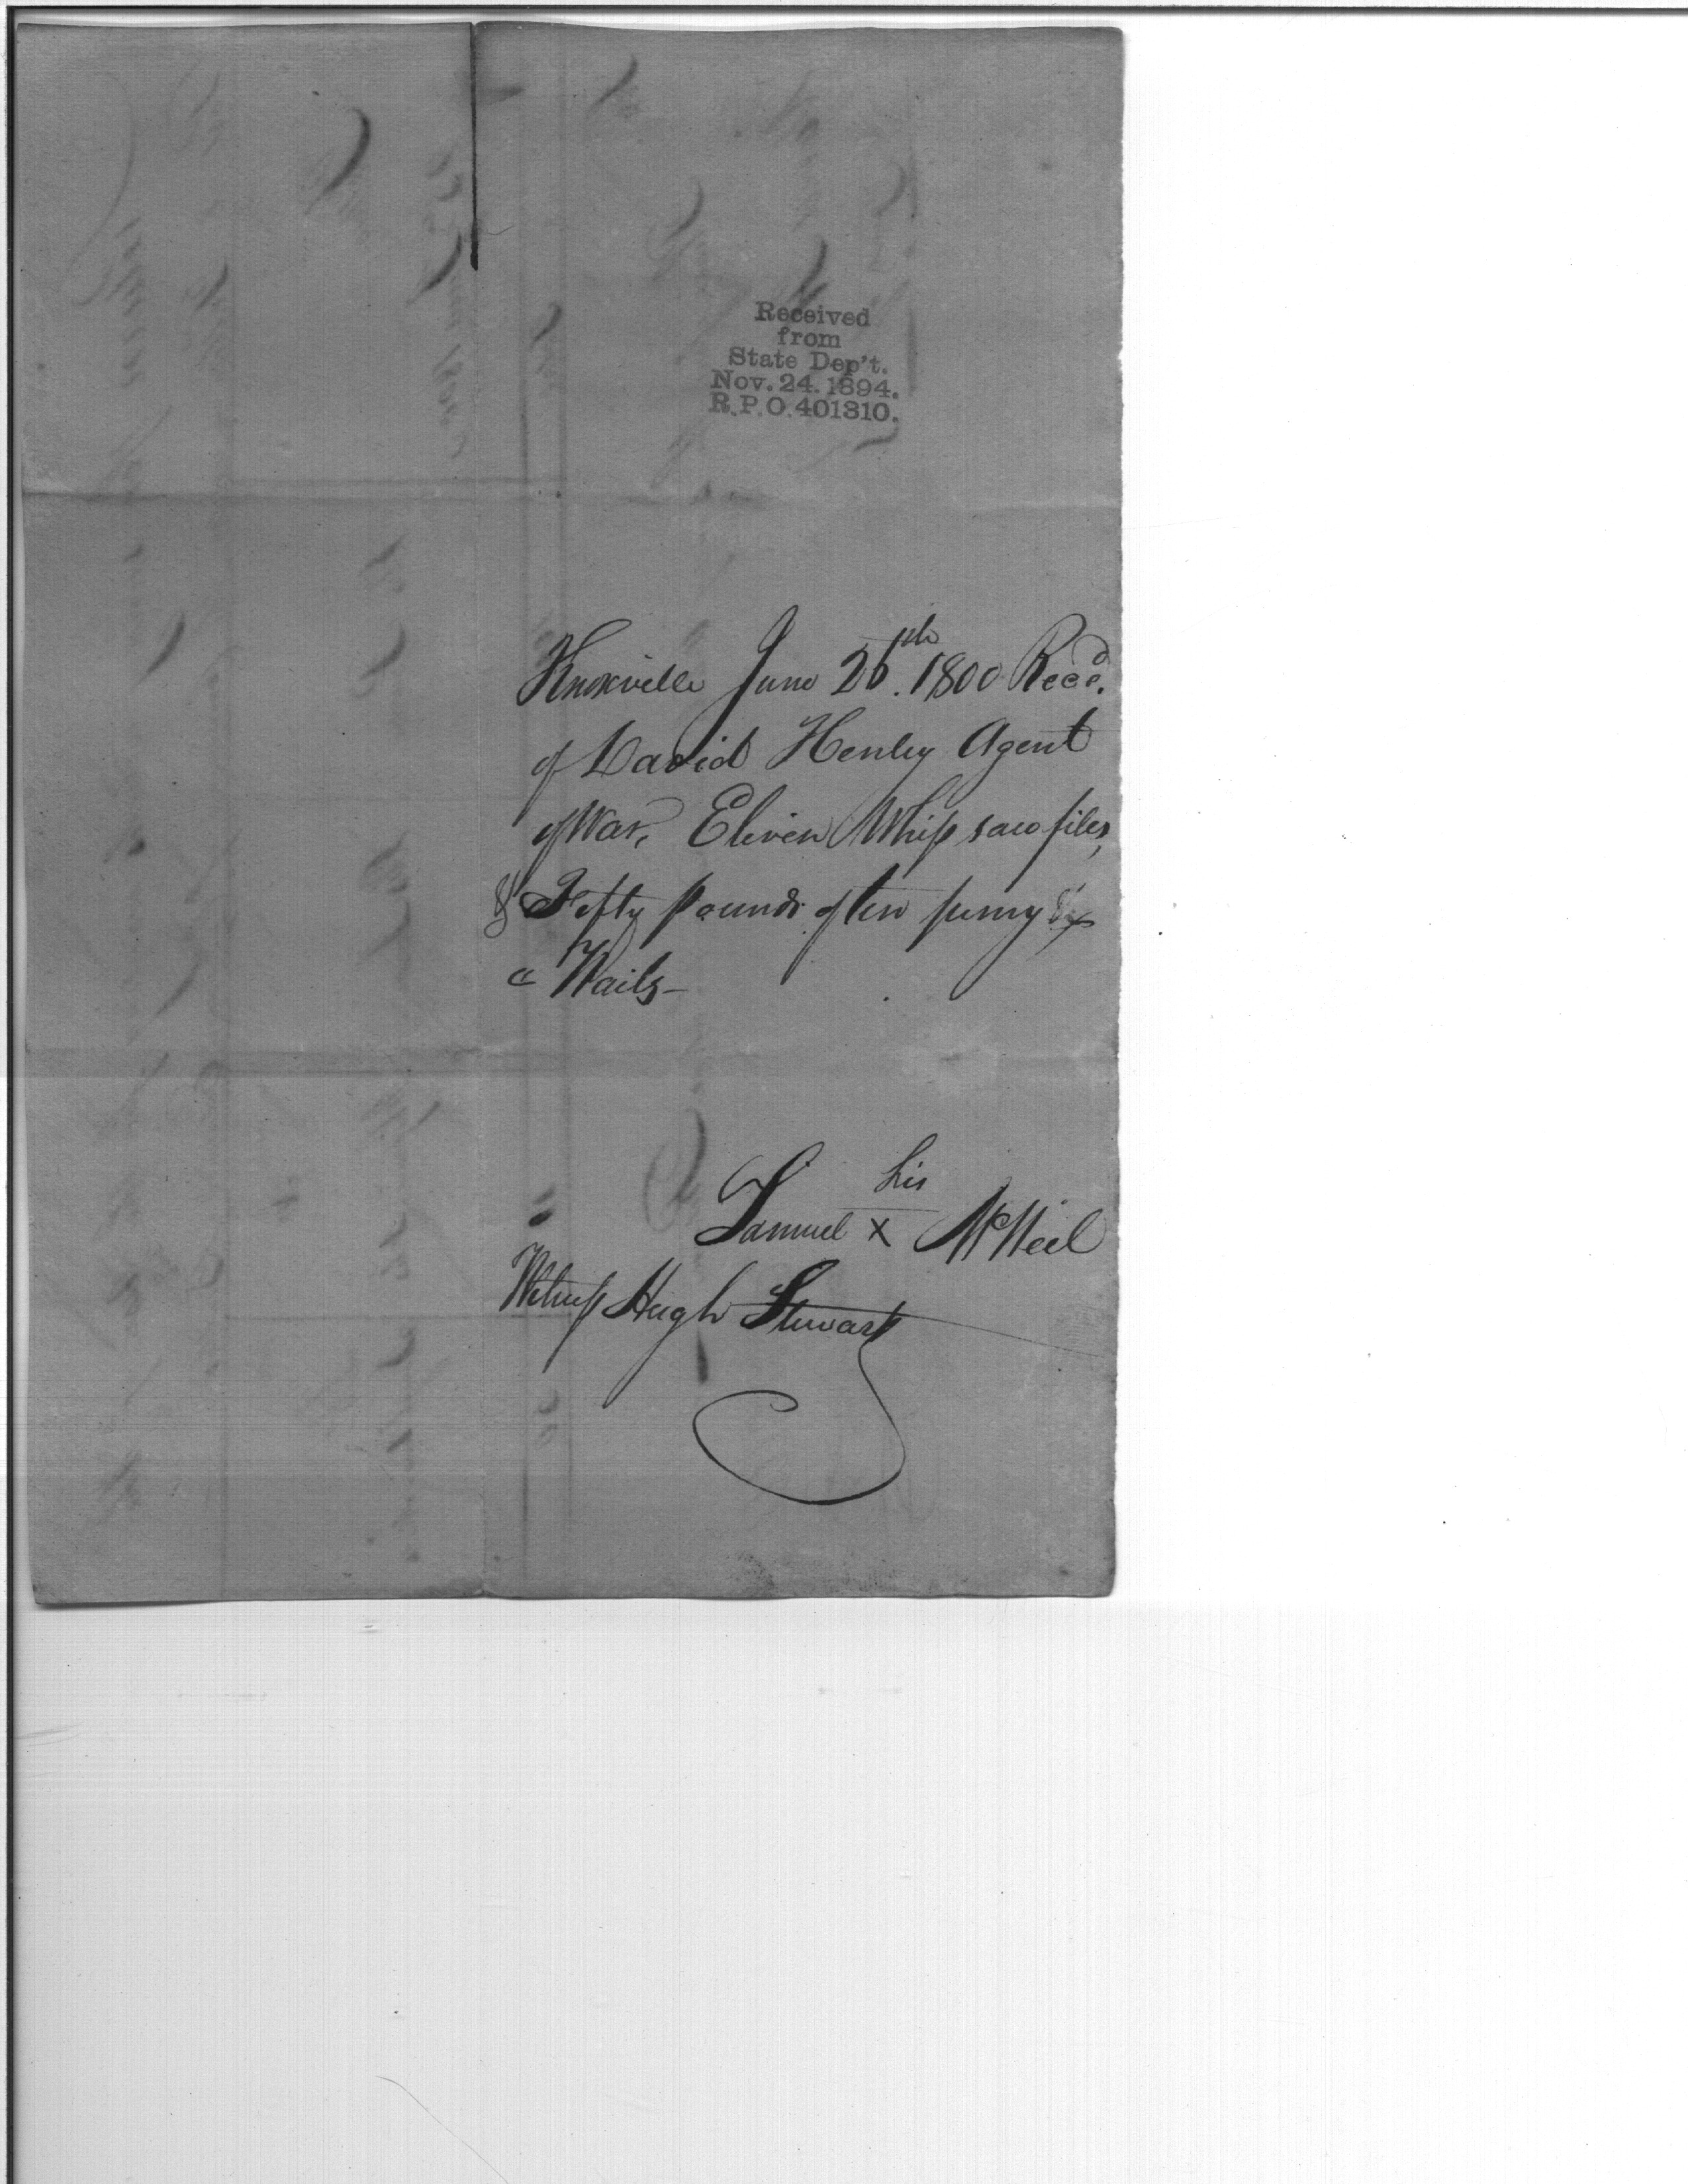 Received
from
State Dep't.
Nov. 24. 1894.
R.P.O. 401310.
Knoxville June 26th. 1800 Reced.
of David Henley Agent
of War, Eleven Whip saw files,
& Fifty pounds of ten penny
Nails—
his
Samuel X McNeil
Witness Hugh Stewart